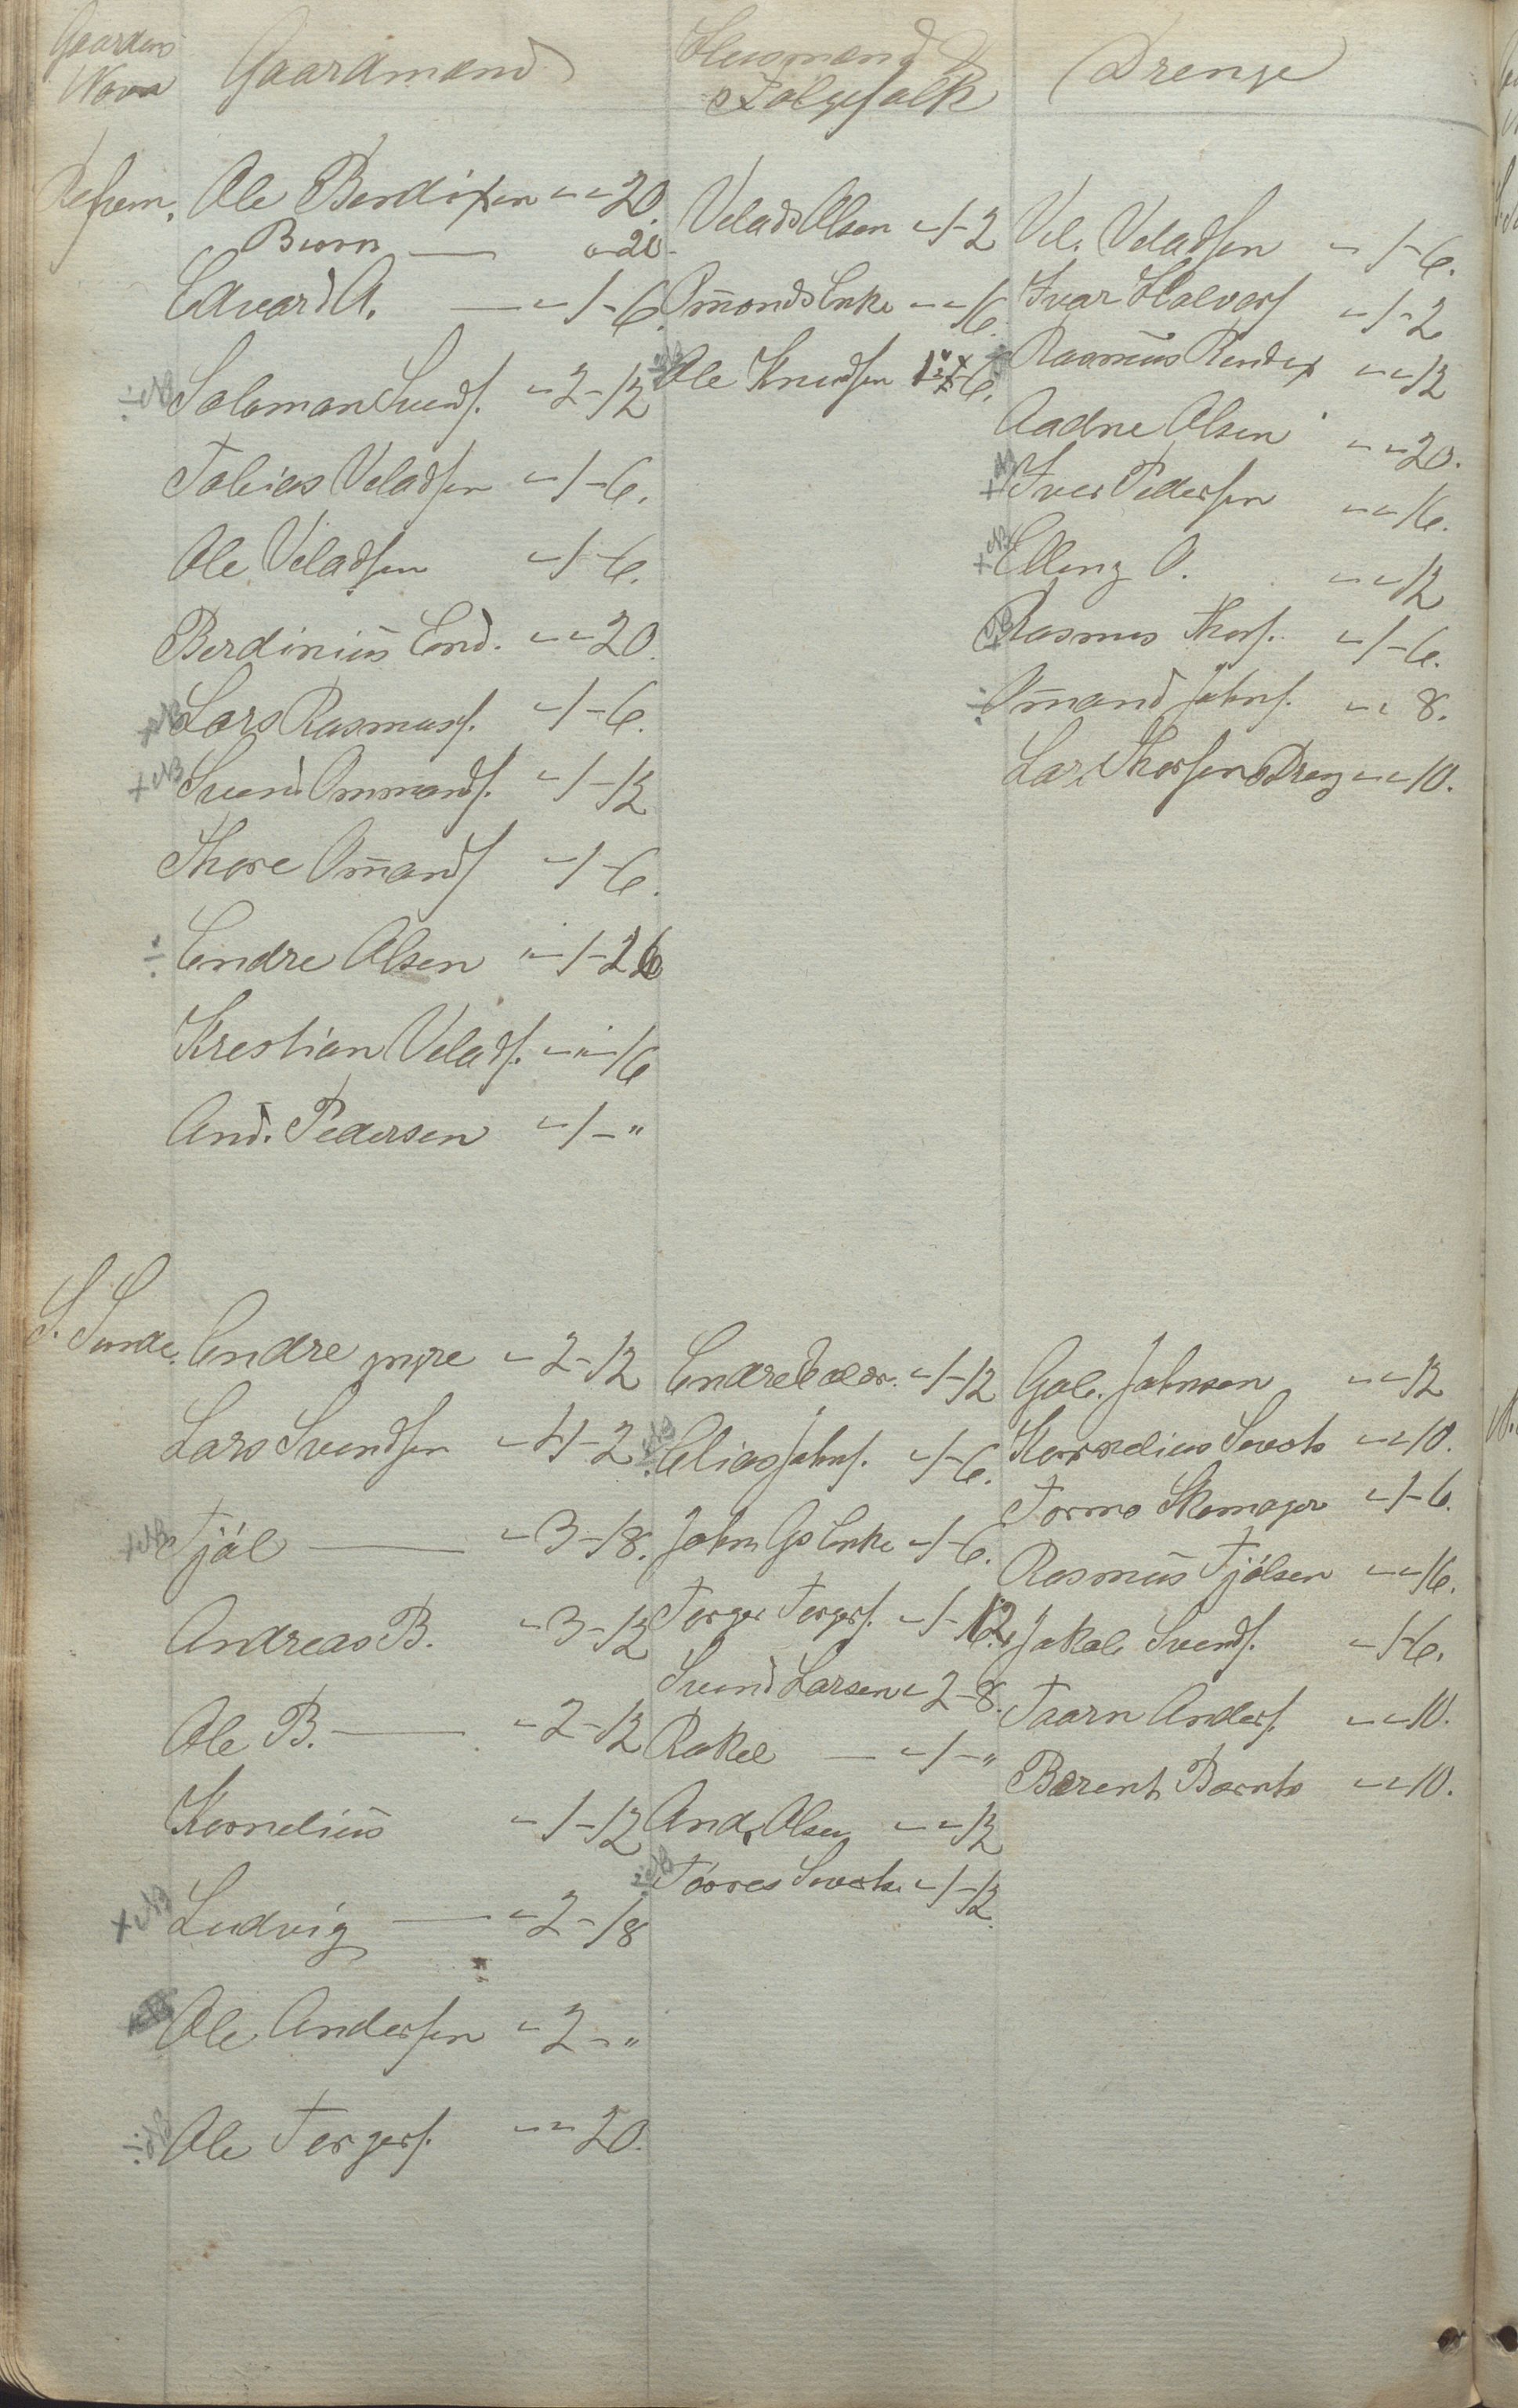 Gaardens Navn
Gaardmand
Husmand & Følgefolk
Drenge
Refsem. Ole Berdixen " " 20.
Bværn — " 20.
Edvard A. — " 1 - 6.
÷ NB Salomon Svends. " 2 - 12
Tobias Veladsen " 1 - 6.
Ole Veladsen " 1 - 6.
Berdinius End. " " 20.
NB Lars Rasmuss. " 1 - 6.
+ NB Svend Ommands. " 1 - 12
Thore Om̄ands " 1 - 6.
÷ Endre Olsen " 1 - 16
Krestian Velads. " " 16
And. Pedersen " 1 - "
Velads Olsen " 1 - 2
Om̄onds Enke " " 16.
NB Ole Knudsen 6.
Vel. Veladsen " 1 - 6.
Ivar Halvors " 1 - 2
Rasmus Berdix " " 12
Aadne Olsen " " 20.
+ NB Iver Pedersen " " 16.
+ NB Elling O. " " 12
+ NB Rasmus Thors. " 1 - 6.
÷ Om̄and Johns. " " 8.
Lars Thorsens Dreng " " 10.
S. Sunde. Endre yngre " 2 - 12
Lars Svendsen " 4 - 2
+ NB Tjøl — " 3 - 18.
Andreas B. " 3 - 12
Ole B. — " 2 - 12
Kornelius " 1 - 12
+ NB Ludvig — " 2 - 18
Ole Andersen " 2 - "
÷ NB Ole Tergers. " " 20.
Endre Eldr. " 1 - 12
NB Elias Johns. " 1 - 6.
John Gs Enke " 1 - 6.
Terger Tergers. " 1 - 12
Svend Larsen " 2 - 8.
Rakel — " 1 - "
And. Olsen " " 12
÷ NB Torres " 1 - 12
Gab. Johnsen " " 12
Kornelius " " 10.
Tormo Skomager " 1 - 6.
Rasmus Tjølsen " " 16.
Jakob Svends. " 1 - 6.
Taarn Anders. " " 10.
Barent Barnts " " 10.